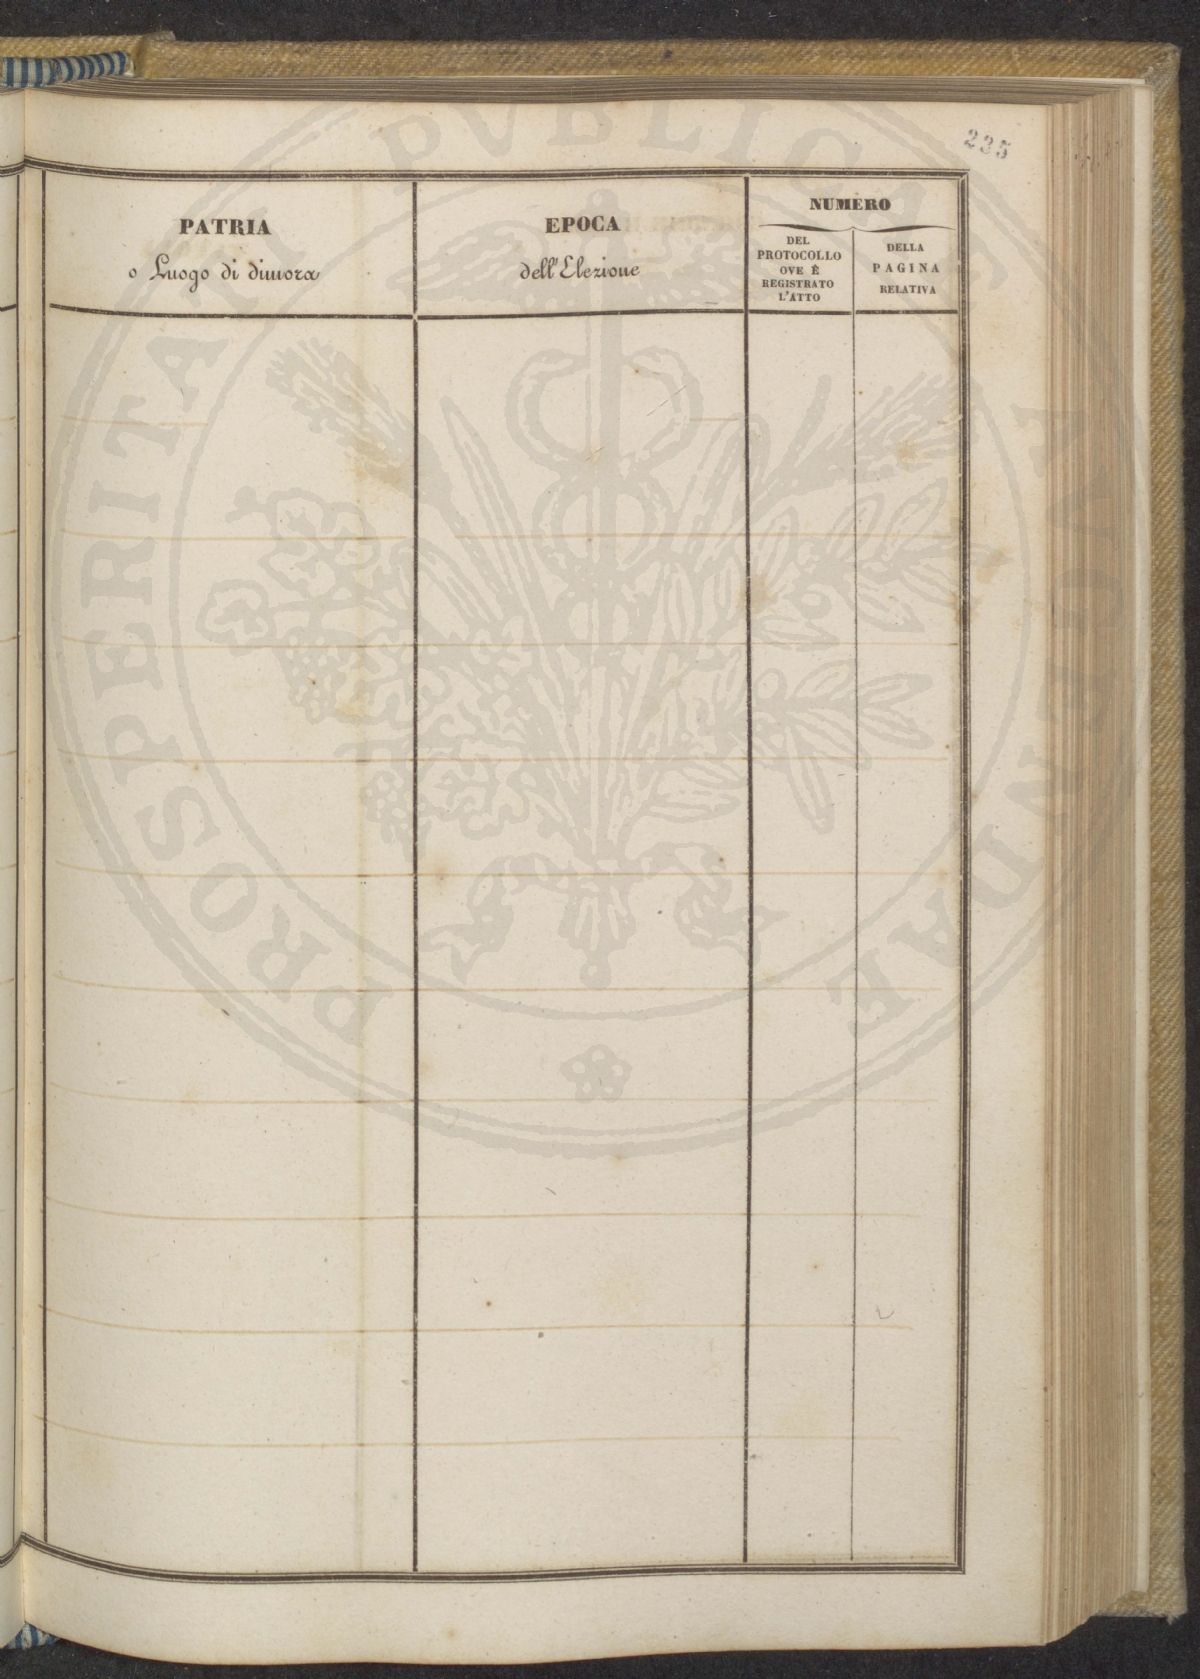 235
PATRIA
o Luogo di dimora
EPOCA
dell'Elezione
NUMERO
DEL
PROTOCOLLO
OVE È
REGISTRATO
L'ATTO
DELLA
PAGINA
RELATIVA
PROSPERITATI PVBLICAE AVGENDAE